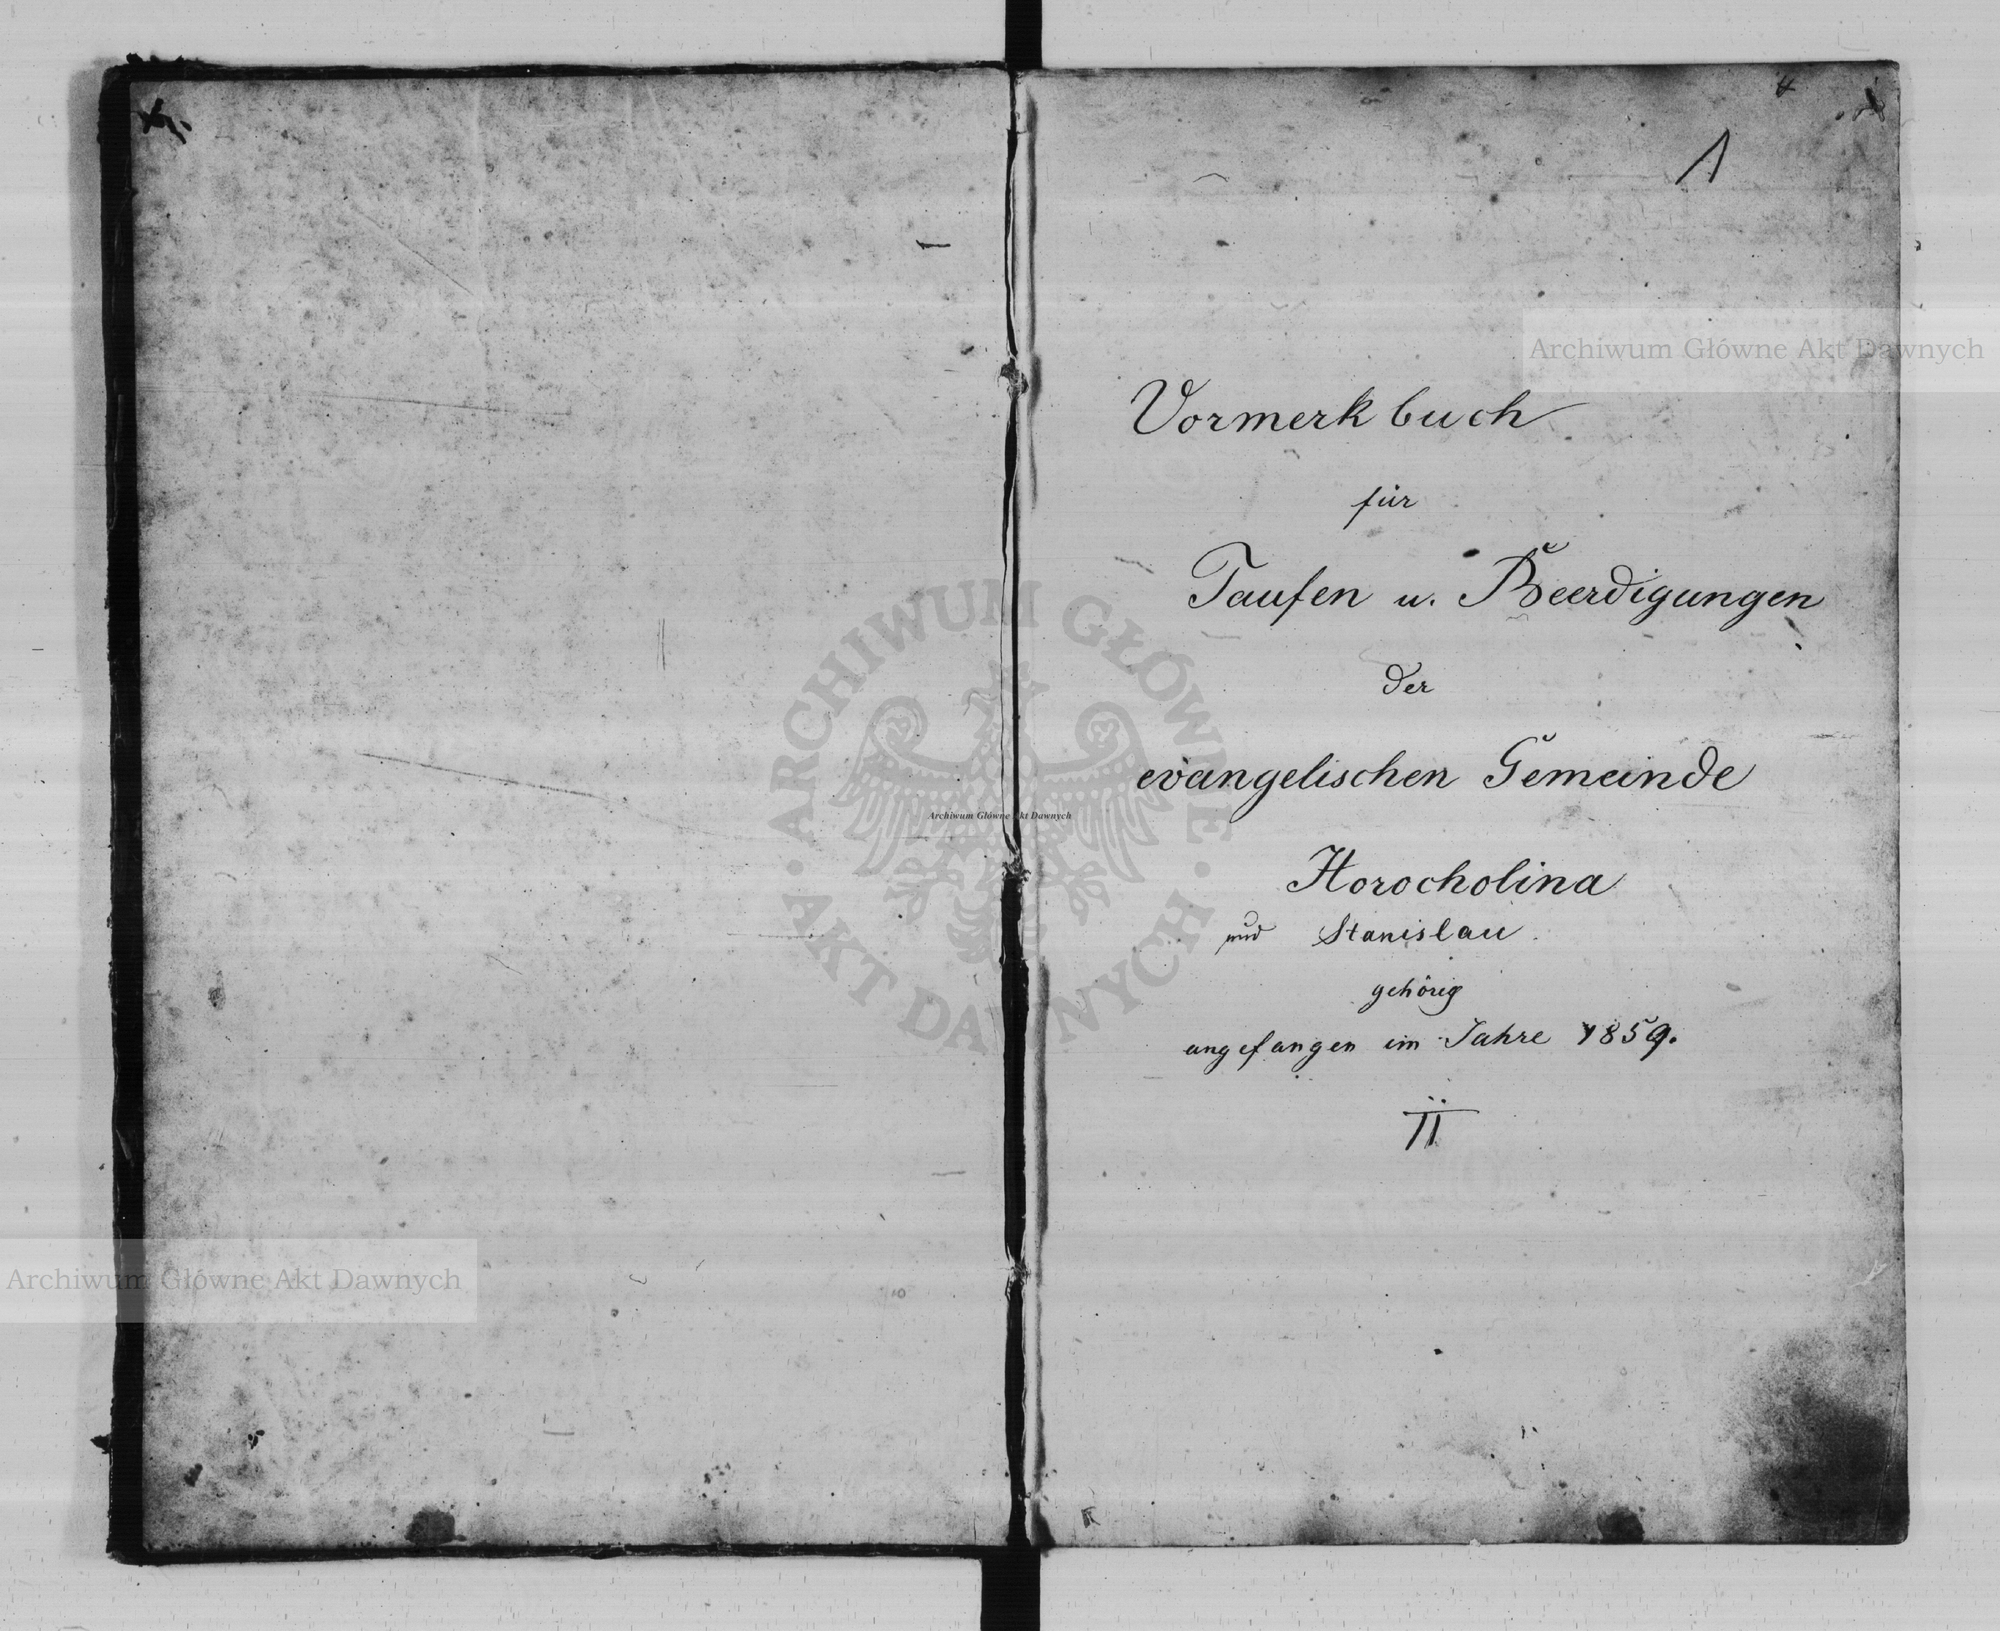 1
Archiwum Główne Akt Dawnych
Vormerkbuch
für
Taufen u. Beerdigungen
der
evangelischen Gemeinde
Horocholina
und Stanislau
gehörig
angefangen im Jahre 1859.
II
ARCHIWUM GŁÓWNE AKT DAWNYCH
Archiwum Główne Akt Dawnych
Archiwum Główne Akt Dawnych